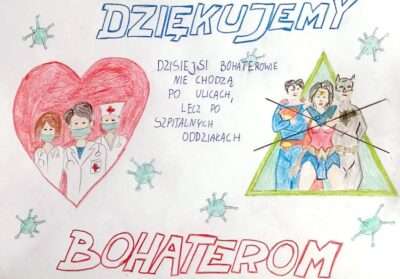 DZIĘKUJEMY
DZISIEJSI BOHATEROWIE
NIE CHODZĄ
PO ULICACH,
LECZ PO
SZPITALNYCH
ODDZIAŁACH
BOHATEROM